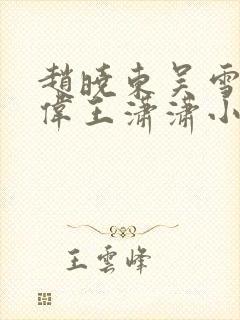 趙曉東吳雪
偉王瀟瀟小
王雲峰